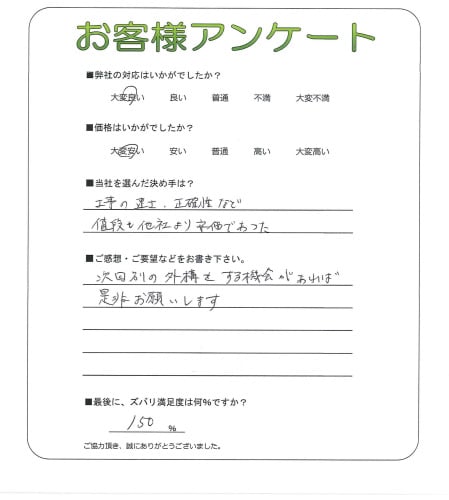 お客様アンケート
■弊社の対応はいかがでしたか？
大変良い 良い 普通 不満 大変不満
■価格はいかがでしたか？
大変安い 安い 普通 高い 大変高い
■当社を選んだ決め手は？
工事の速さ、正確性など
値段も他社より安価であった
■ご感想・ご要望などをお書き下さい。
次回別の外構をする機会があれば
是非お願いします
■最後に、ズバリ満足度は何％ですか？
150 ％
ご協力頂き、誠にありがとうございました。